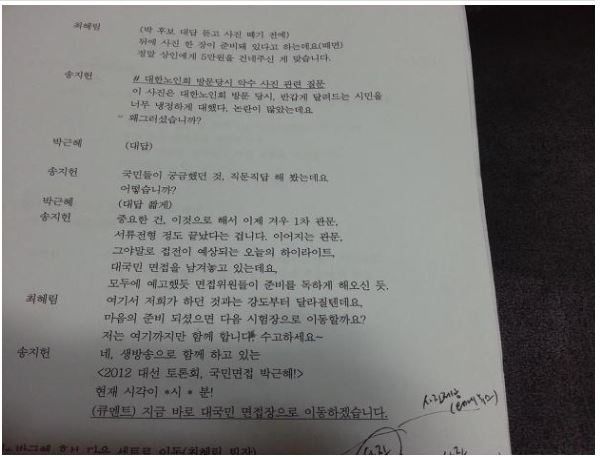 최혜림 (박 후보 대답 듣고 사진 떼기 전에)
뒤에 사진 한 장이 준비돼 있다고 하는데요(떼면)
정말 상인에게 5만원을 건네주신 게 맞습니다.
송지헌 # 대한노인회 방문당시 악수 사진 관련 질문
이 사진은 대한노인회 방문 당시, 반갑게 달려드는 시민을
너무 냉정하게 대했다. 논란이 많았는데요
왜그러셨습니까?
박근혜 (대답)
송지헌 국민들이 궁금했던 것, 직문직답 해 봤는데요
어떻습니까?
박근혜 (대답 짧게)
송지헌 중요한 건, 이것으로 해서 이제 겨우 1차 관문,
서류전형 정도 끝났다는 겁니다. 이어지는 관문,
그야말로 접전이 예상되는 오늘의 하이라이트,
대국민 면접을 남겨놓고 있는데요,
모두에 예고했듯 면접위원들이 준비를 독하게 해오신 듯.
최혜림 여기서 저희가 하던 것과는 강도부터 달라질텐데요,
마음의 준비 되셨으면 다음 시험장으로 이동할까요?
저는 여기까지만 함께 합니다 수고하세요~
송지헌 네, 생방송으로 함께 하고 있는
<2012 대선 토론회, 국민면접 박근혜!>
현재 시각이 *시 * 분!
(큐멘트) 지금 바로 대국민 면접장으로 이동하겠습니다.
다음 세트로 이동(최혜림 퇴장)